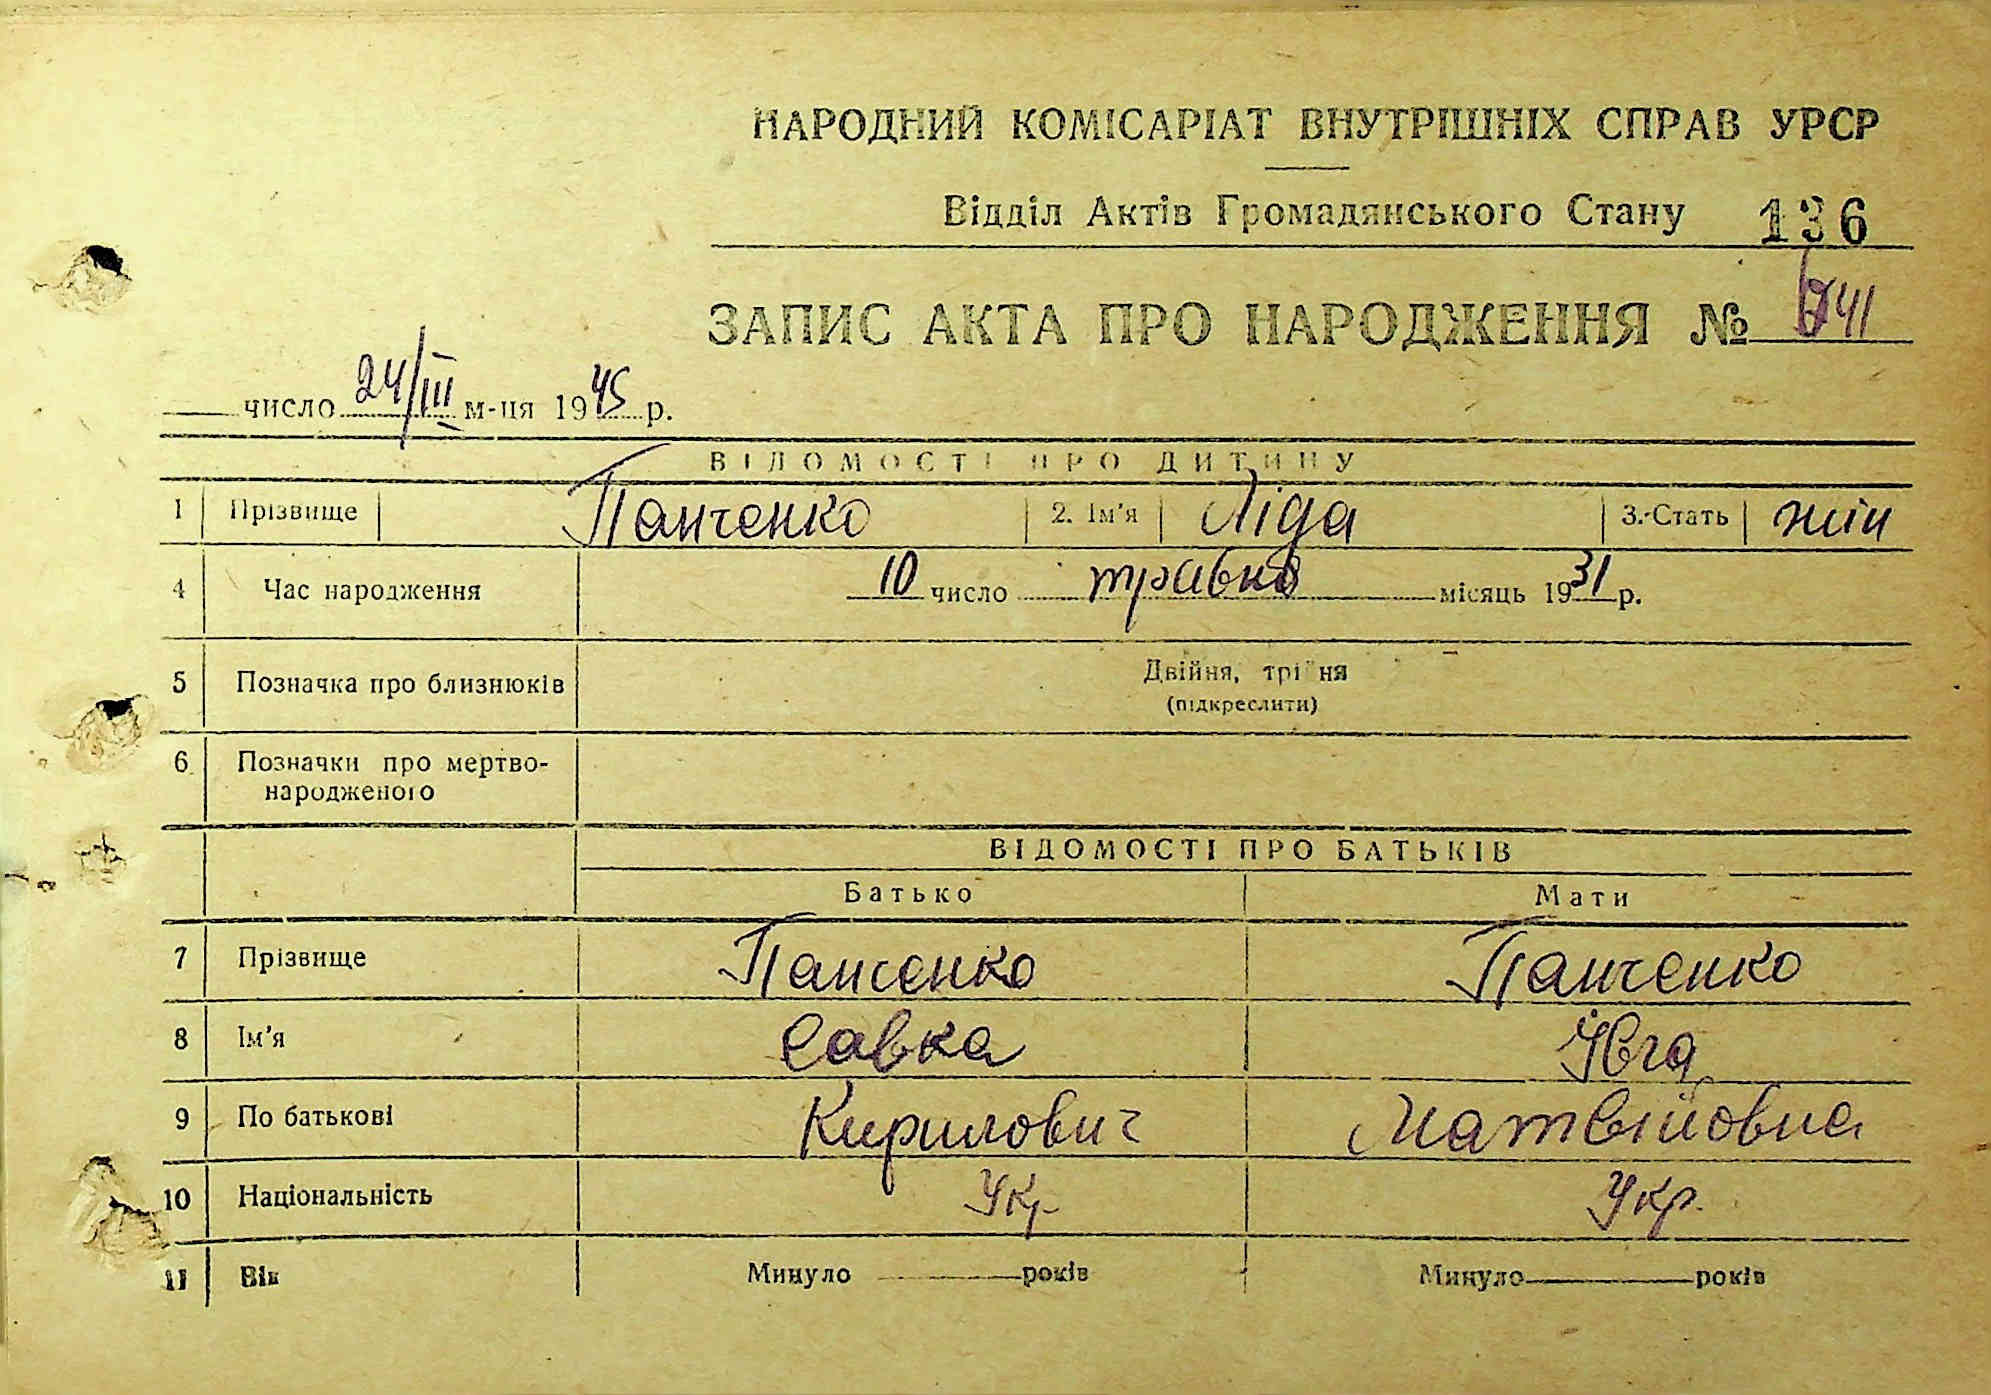 НАРОДНИЙ КОМІСАРІАТ ВНУТРІШНІХ СПРАВ УРСР
Відділ Актів Громадянського Стану 136
ЗАПИС АКТА ПРО НАРОДЖЕННЯ № 41
число 24/III м-ця 1945 р.
ВІДОМОСТІ ПРО ДИТИНУ
1 Прізвище Панченко 2. Ім'я Ліда 3. Стать жін
4 Час народження 10 число травня місяць 1931 р.
5 Позначка про близнюків Двійня, трі ня
(підкреслити)
6 Позначки про мертво-
народженого
ВІДОМОСТІ ПРО БАТЬКІВ
Батько Мати
7 Прізвище Панченко Панченко
8 Ім'я Савка Ївга
9 По батькові Кирилович Матвійовна
10 Національність Укр. Укр.
11 Вік Минуло років Минуло років